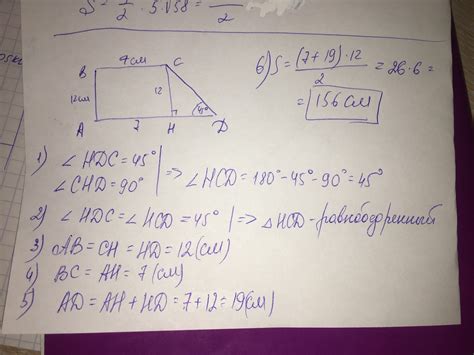 S = 1/2 · 5√58 = /2
7см
B C
12см 12 45°
A 7 H D
6) S = (7+19)·12/2 = 26·6 =
= 156 см
1) ∠HDC = 45° | => ∠HCD = 180° - 45° - 90° = 45°
∠CHD = 90°
2) ∠HDC = ∠HCD = 45° | => △HCD - равнобедренный
3) AB = CH = HD = 12 (см)
4) BC = AH = 7 (см)
5) AD = AH + HD = 7 + 12 = 19 (см)